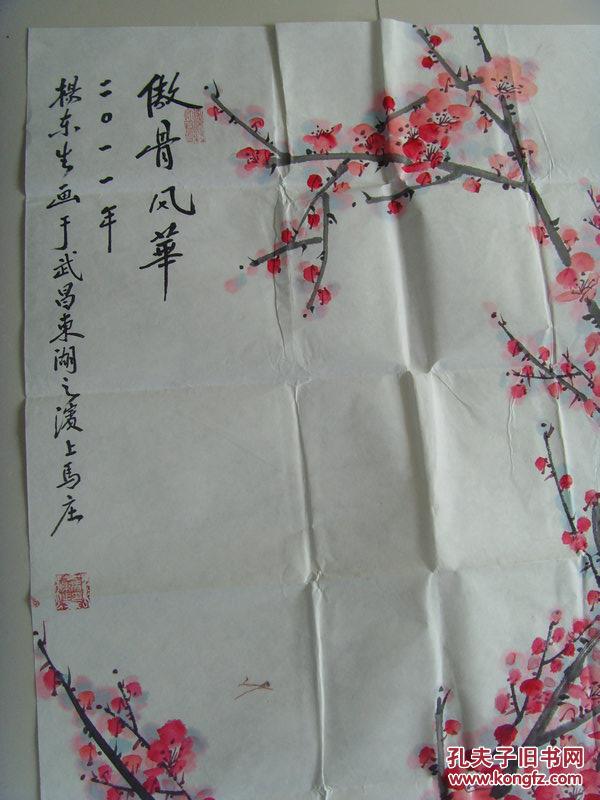 傲骨风華
二〇一一年
杨东生画于武昌東湖之濱上馬庄
孔夫子旧书网
www.kongfz.com